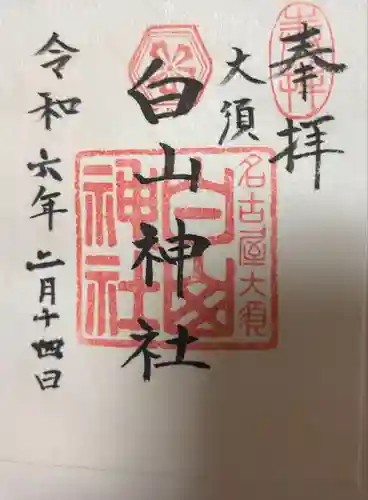 奉拝
大須
白山神社
令和六年二月十四日
名古屋大須
白山
神社